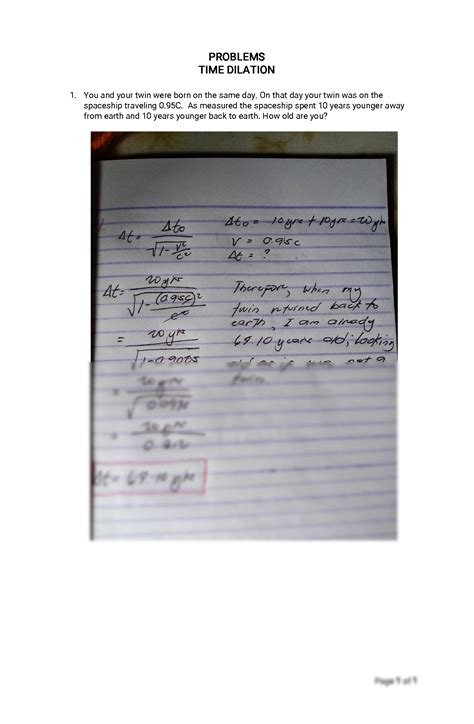 PROBLEMS
TIME DILATION
1. You and your twin were born on the same day. On that day your twin was on the
spaceship traveling 0.95C. As measured the spaceship spent 10 years younger away
from earth and 10 years younger back to earth. How old are you?
Δt = Δto / √1 - v²/c²
Δto = 10yrs + 10yrs = 20yrs
V = 0.95c
Δt = ?
Δt = 20yrs / √1 - (0.95c)²/c²
= 20yrs / √1-0.9025
Therefore, when my
twin returned back to
earth, I am already
69.10 years old; looking
20yrs
20yrs
Δt = 69.10 yrs
Page 1 of 1